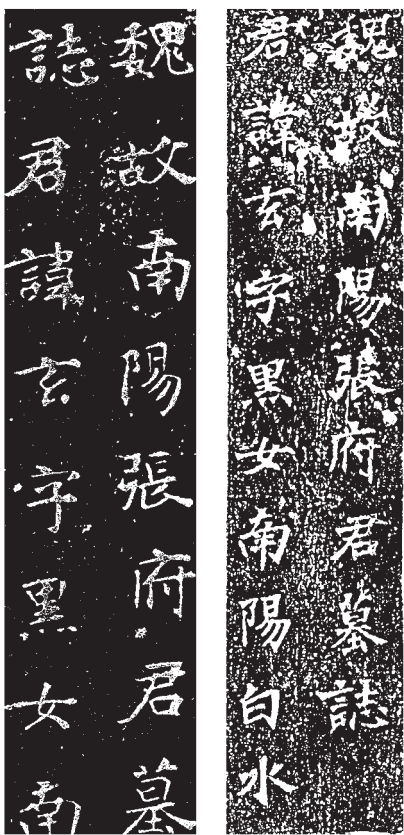 魏故南陽張府君墓誌
君諱玄字黑女南陽白水
魏故南陽張府君墓
誌君諱玄字黑女南